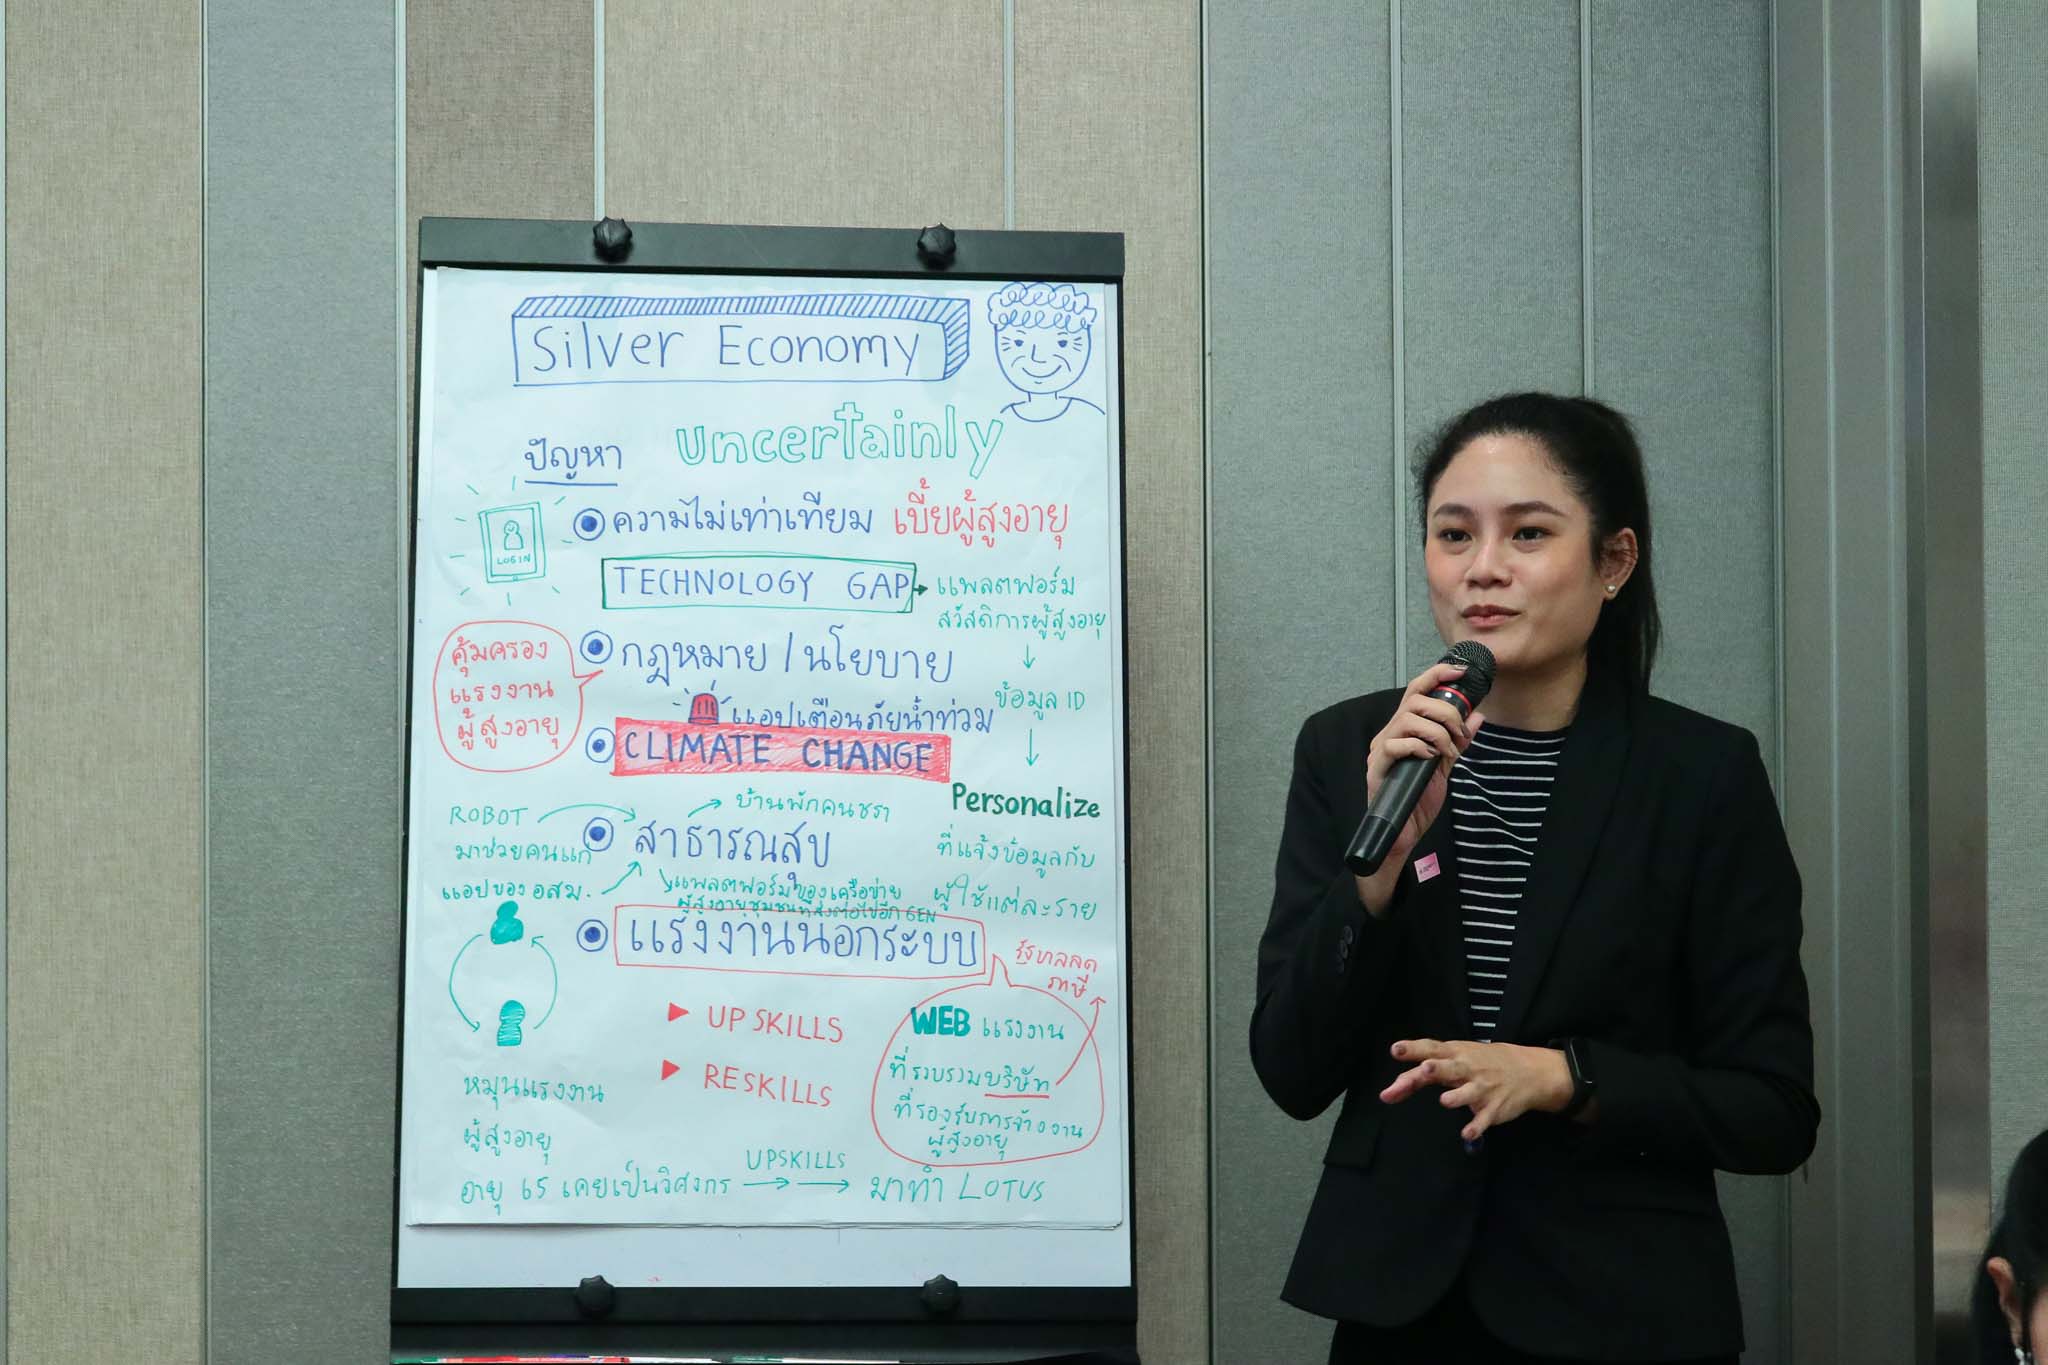 Silver Economy
uncertainly
ปัญหา
LOGIN
ความไม่เท่าเทียม เบี้ยผู้สูงอายุ
TECHNOLOGY GAP
แพลตฟอร์ม
สวัสดิการผู้สูงอายุ
ข้อมูล ID
Personalize
ที่แจ้งข้อมูลกับ
ผู้ใช้แต่ละราย
กฎหมาย / นโยบาย
คุ้มครอง
แรงงาน
ผู้สูงอายุ
แอปเตือนภัยน้ำท่วม
CLIMATE CHANGE
ROBOT
มาช่วยคนแก่
แอปของ อสม.
บ้านพักคนชรา
สาธารณสุข
แพลตฟอร์มของเครือข่าย
ผู้สูงอายุชุมชนที่ส่งต่อไปอีก GEN
แรงงานนอกระบบ
รัฐบาลลด
ภาษี
UPSKILLS
RESKILLS
WEB แรงงาน
ที่รวบรวมบริษัท
ที่รองรับการจ้างงาน
ผู้สูงอายุ
หมุนแรงงาน
ผู้สูงอายุ
อายุ 65 เคยเป็นวิศวกร UPSKILLS มาทำ LOTUS